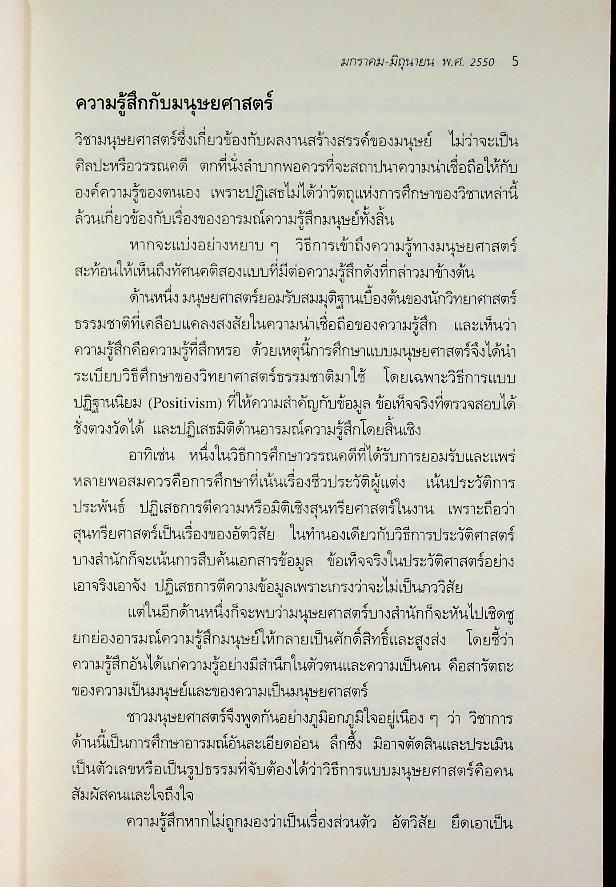 มกราคม-มิถุนายน พ.ศ. 2550 5
ความรู้สึกกับมนุษยศาสตร์
วิชามนุษยศาสตร์ซึ่งเกี่ยวข้องกับผลงานสร้างสรรค์ของมนุษย์ ไม่ว่าจะเป็น
ศิลปะหรือวรรณคดี ตกที่นั่งลำบากพอควรที่จะสถาปนาความน่าเชื่อถือให้กับ
องค์ความรู้ของตนเอง เพราะปฏิเสธไม่ได้ว่าวัตถุแห่งการศึกษาของวิชาเหล่านี้
ล้วนเกี่ยวข้องกับเรื่องของอารมณ์ความรู้สึกมนุษย์ทั้งสิ้น
หากจะแบ่งอย่างหยาบ ๆ วิธีการเข้าถึงความรู้ทางมนุษยศาสตร์
สะท้อนให้เห็นถึงทัศนคติสองแบบที่มีต่อความรู้สึกดังที่กล่าวมาข้างต้น
ด้านหนึ่ง มนุษยศาสตร์ยอมรับสมมุติฐานเบื้องต้นของนักวิทยาศาสตร์
ธรรมชาติที่เคลือบแคลงสงสัยในความน่าเชื่อถือของความรู้สึก และเห็นว่า
ความรู้สึกคือความรู้ที่สึกหรอ ด้วยเหตุนี้การศึกษาแบบมนุษยศาสตร์จึงได้นำ
ระเบียบวิธีศึกษาของวิทยาศาสตร์ธรรมชาติมาใช้ โดยเฉพาะวิธีการแบบ
ปฏิฐานนิยม (Positivism) ที่ให้ความสำคัญกับข้อมูล ข้อเท็จจริงที่ตรวจสอบได้
ชั่งตวงวัดได้ และปฏิเสธมิติด้านอารมณ์ความรู้สึกโดยสิ้นเชิง
อาทิเช่น หนึ่งในวิธีการศึกษาวรรณคดีที่ได้รับการยอมรับและแพร่
หลายพอสมควรคือการศึกษาที่เน้นเรื่องชีวประวัติผู้แต่ง เน้นประวัติการ
ประพันธ์ ปฏิเสธการตีความหรือมิติเชิงสุนทรียศาสตร์ในงาน เพราะถือว่า
สุนทรียศาสตร์เป็นเรื่องของอัตวิสัย ในทำนองเดียวกับวิธีการประวัติศาสตร์
บางสำนักก็จะเน้นการสืบค้นเอกสารข้อมูล ข้อเท็จจริงในประวัติศาสตร์อย่าง
เอาจริงเอาจัง ปฏิเสธการตีความข้อมูลเพราะเกรงว่าจะไม่เป็นภววิสัย
แต่ในอีกด้านหนึ่งก็จะพบว่ามนุษยศาสตร์บางสำนักก็จะหันไปเชิดชู
ยกย่องอารมณ์ความรู้สึกมนุษย์ให้กลายเป็นศักดิ์สิทธิ์และสูงส่ง โดยชี้ว่า
ความรู้สึกอันได้แก่ความรู้อย่างมีสำนึกในตัวตนและความเป็นคน คือสารัตถะ
ของความเป็นมนุษย์และของความเป็นมนุษยศาสตร์
ชาวมนุษยศาสตร์จึงพูดกันอย่างภูมิอกภูมิใจอยู่เนือง ๆ ว่า วิชาการ
ด้านนี้เป็นการศึกษาอารมณ์อันละเอียดอ่อน ลึกซึ้ง มิอาจตัดสินและประเมิน
เป็นตัวเลขหรือเป็นรูปธรรมที่จับต้องได้ว่าวิธีการแบบมนุษยศาสตร์คือคน
สัมผัสคนและใจถึงใจ
ความรู้สึกหากไม่ถูกมองว่าเป็นเรื่องส่วนตัว อัตวิสัย ยึดเอาเป็น